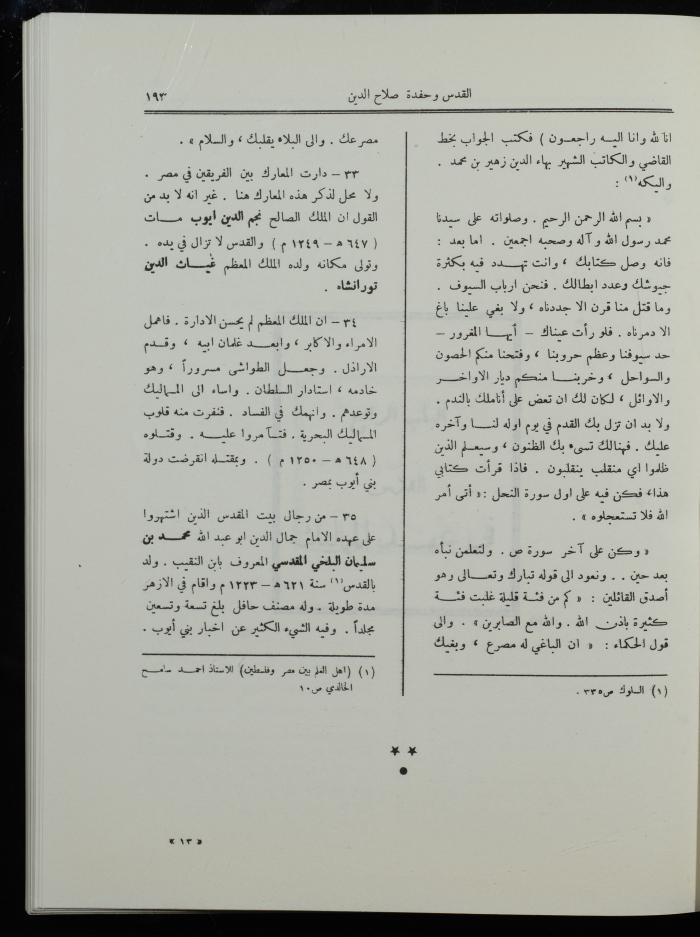 القدس وحفدة صلاح الدين
١٩٣
انا لله وانا اليه راجعون ) فكتب الجواب بخط
القاضي والكاتب الشهير بهاء الدين زهير بن محمد .
واليكه (١) :
« بسم الله الرحمن الرحيم . وصلواته على سيدنا
محمد رسول الله وآله وصحبه اجمعين . اما بعد :
فانه وصل كتابك ، وانت تهدد فيه بكثرة
جيوشك وعدد ابطالك . فنحن ارباب السيوف .
وما قتل منا قرن الا جددناه ، ولا بغي علينا باغ
الا دمرناه . فلو رأت عيناك – أيها المغرور –
حد سيوفنا وعظم حروبنا ، وفتحنا منكم الحصون
والسواحل ، وخربنا منكم ديار الاواخر
والاوائل ، لكان لك ان تعض على أناملك بالندم .
ولا بد ان تزل بك القدم في يوم اوله لنا وآخره
عليك . فهنالك تسيء بك الظنون ، وسيعلم الذين
ظلموا اي منقلب ينقلبون . فاذا قرأت كتابي
هذا، فكن فيه على اول سورة النحل : « أتى أمر
الله فلا تستعجلوه » .
« وكن على آخر سورة ص . ولتعلمن نبأه
بعد حين . . ونعود الى قوله تبارك وتعالى وهو
أصدق القائلين : « كم من فئة قليلة غلبت فئة
كثيرة باذن الله . والله مع الصابرين » . والى
قول الحكماء : « ان الباغي له مصرع ، وبغيك
(١) السلوك ص ٣٣٥ .
مصرعك . والى البلاء يقلبك ، والسلام » .
٣٣ – دارت المعارك بين الفريقين في مصر .
ولا محل لذكر هذه المعارك هنا . غير انه لا بد من
القول ان الملك الصالح نجم الدين ايوب مات
( ٦٤٧ ه – ١٢٤٩ م ) والقدس لا تزال في يده .
وتولى مكانه ولده الملك المعظم غياث الدين
تورانشاه .
٣٤ – ان الملك المعظم لم يحسن الادارة . فاهمل
الامراء والاكابر ، وابعد غلمان ابيه ، وقدم
الاراذل . وجعل الطواشي مسروراً ، وهو
خادمه ، استادار السلطان . واساء الى المماليك
وتوعدهم . وانهمك في الفساد . فنفرت منه قلوب
المماليك البحرية . فتآمروا عليه . وقتلوه
( ٦٤٨ ه – ١٢٥٠ م ) . وبمقتله انقرضت دولة
بني أيوب بمصر .
٣٥ – من رجال بيت المقدس الذين اشتهروا
على عهده الامام جمال الدين ابو عبد الله محمد بن
سليمان البلخي المقدسي المعروف بابن النقيب . ولد
بالقدس (١) سنة ٦٢١ ه – ١٢٢٣ م واقام في الازهر
مدة طويلة . وله مصنف حافل بلغ تسعة وتسعين
مجلداً . وفيه الشيء الكثير عن اخبار بني أيوب .
(١) (اهل العلم بين مصر وفلسطين) للاستاذ احمد سامح
الخالدي ص ١٠
« ١٣ »